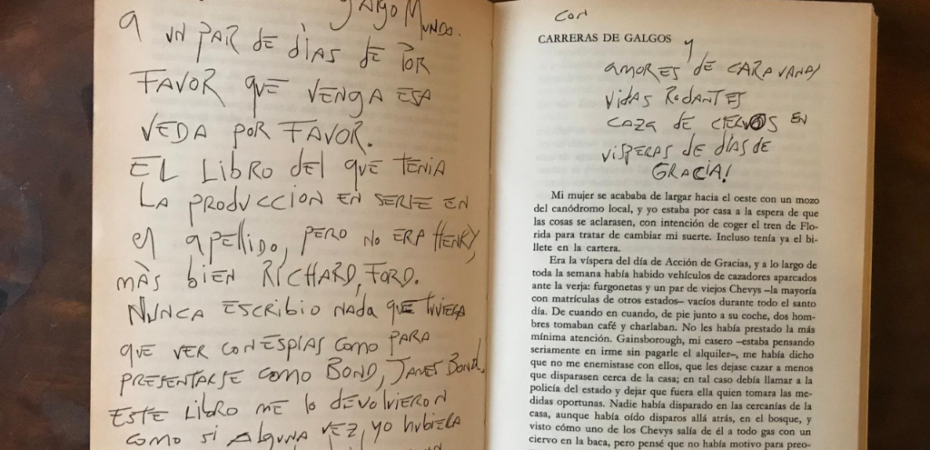 MUNDO.
A UN PAR DE DÍAS DE POR
FAVOR QUE VENGA ESA
VEDA POR FAVOR.
EL LIBRO DEL QUE TENIA
LA PRODUCCION EN SERIE EN
el apellido, pero no ERA HENRY,
más bien RICHARD, FORD.
NUNCA ESCRIBIO NADA QUE TUVIERA
que ver con ESPIAS como para
PRESENTARSE como BOND, JAMES BOND.
ESTE LIBRO ME LO DEVOLVIERON
COMO SI ALGUNA VEZ, yo HUBIERA
CON
CARRERAS DE GALGOS
y
AMORES DE CARAVANAS
VIDAS RODANTES
CAZA DE CIERVOS EN
VISPERAS DE DÍAS DE
GRACIA!
Mi mujer se acababa de largar hacia el oeste con un mozo
del canódromo local, y yo estaba por casa a la espera de que
las cosas se aclarasen, con intención de coger el tren de Flo-
rida para tratar de cambiar mi suerte. Incluso tenía ya el bi-
llete en la cartera.
Era la víspera del día de Acción de Gracias, y a lo largo de
toda la semana había habido vehículos de cazadores aparcados
ante la verja: furgonetas y un par de viejos Chevys –la mayoría
con matrículas de otros estados– vacíos durante todo el santo
día. De cuando en cuando, de pie junto a su coche, dos hom-
bres tomaban café y charlaban. No les había prestado la más
mínima atención. Gainsborough, mi casero –estaba pensando
seriamente en irme sin pagarle el alquiler–, me había dicho
que no me enemistase con ellos, que les dejase cazar a menos
que disparasen cerca de la casa; en tal caso debía llamar a la
policía del estado y dejar que fuera ella quien tomara las me-
didas oportunas. Nadie había disparado en las cercanías de la
casa, aunque había oído disparos allá atrás, en el bosque, y
visto cómo uno de los Chevys salía de él a todo gas con un
ciervo en la baca, pero pensé que no había motivo para preo-